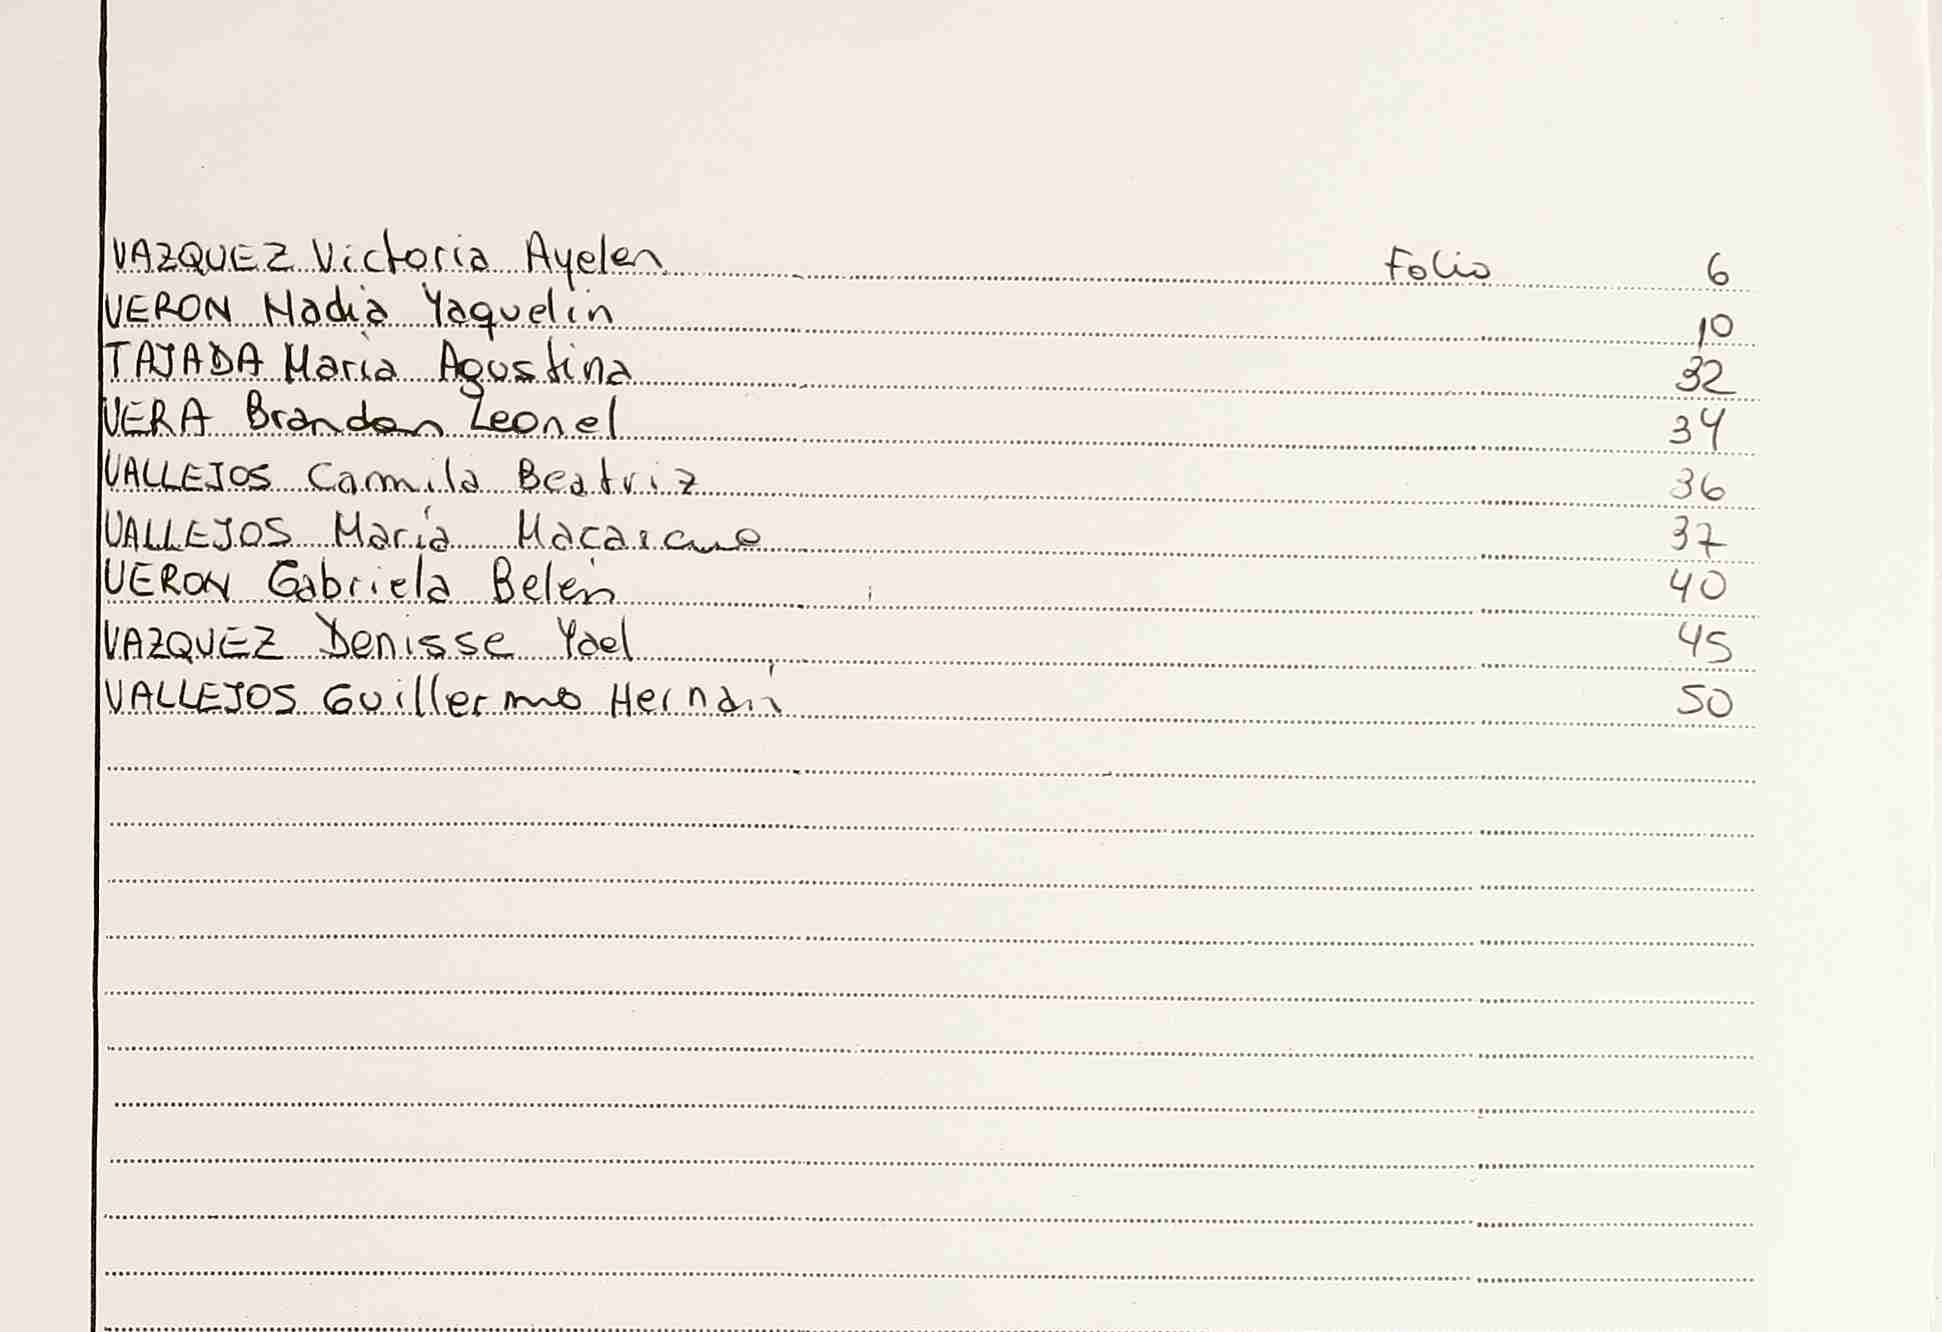 VAZQUEZ Victoria Ayelen Folio 6
VERON Nadia Yaquelin 10
TAJADA Maria Agustina 32
VERA Brandon Leonel 34
VALLEJOS Camila Beatriz 36
VALLEJOS María Macarena 37
VERON Gabriela Belén 40
VAZQUEZ Denisse Yael 45
VALLEJOS Guillermo Hernán 50